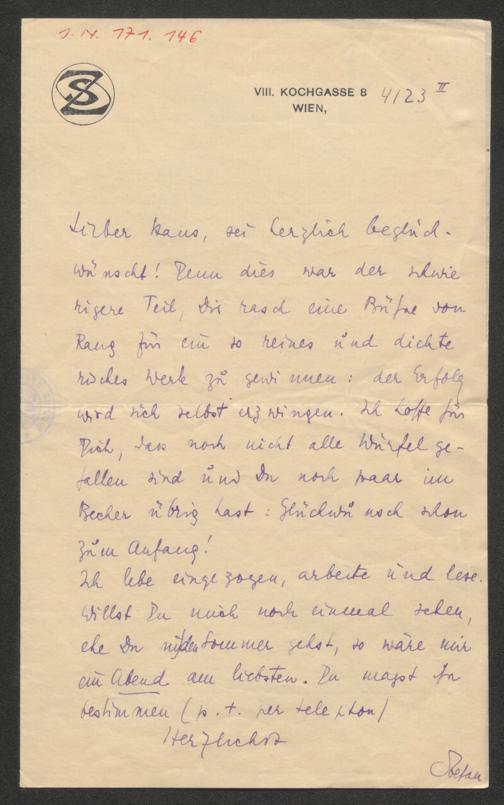 I.N. 171.146
SZ
VIII. KOCHGASSE 8 4/23 II
WIEN,
Lieber Hans, sei herzlich beglück-
wünscht! Denn dies war der schwie
rigere Teil, Dir rasch eine Bühne von
Rang für ein so reines und dichte
risches Werk zu gewinnen: der Erfolg
wird sich selbst erzwingen. Ich hoffe für
Dich, dass noch nicht alle Würfel ge-
fallen sind und Du noch paar im
Becher übrig hast: Glückwunsch schon
zum Anfang!
Ich lebe eingezogen, arbeite und lese.
Willst Du mich noch einmal sehen,
ehe Du in den Sommer gehst, so wäre mir
ein Abend am liebsten. Du magst ihn
bestimmen (p. t. per telephon)
Herzlichst
Stefan